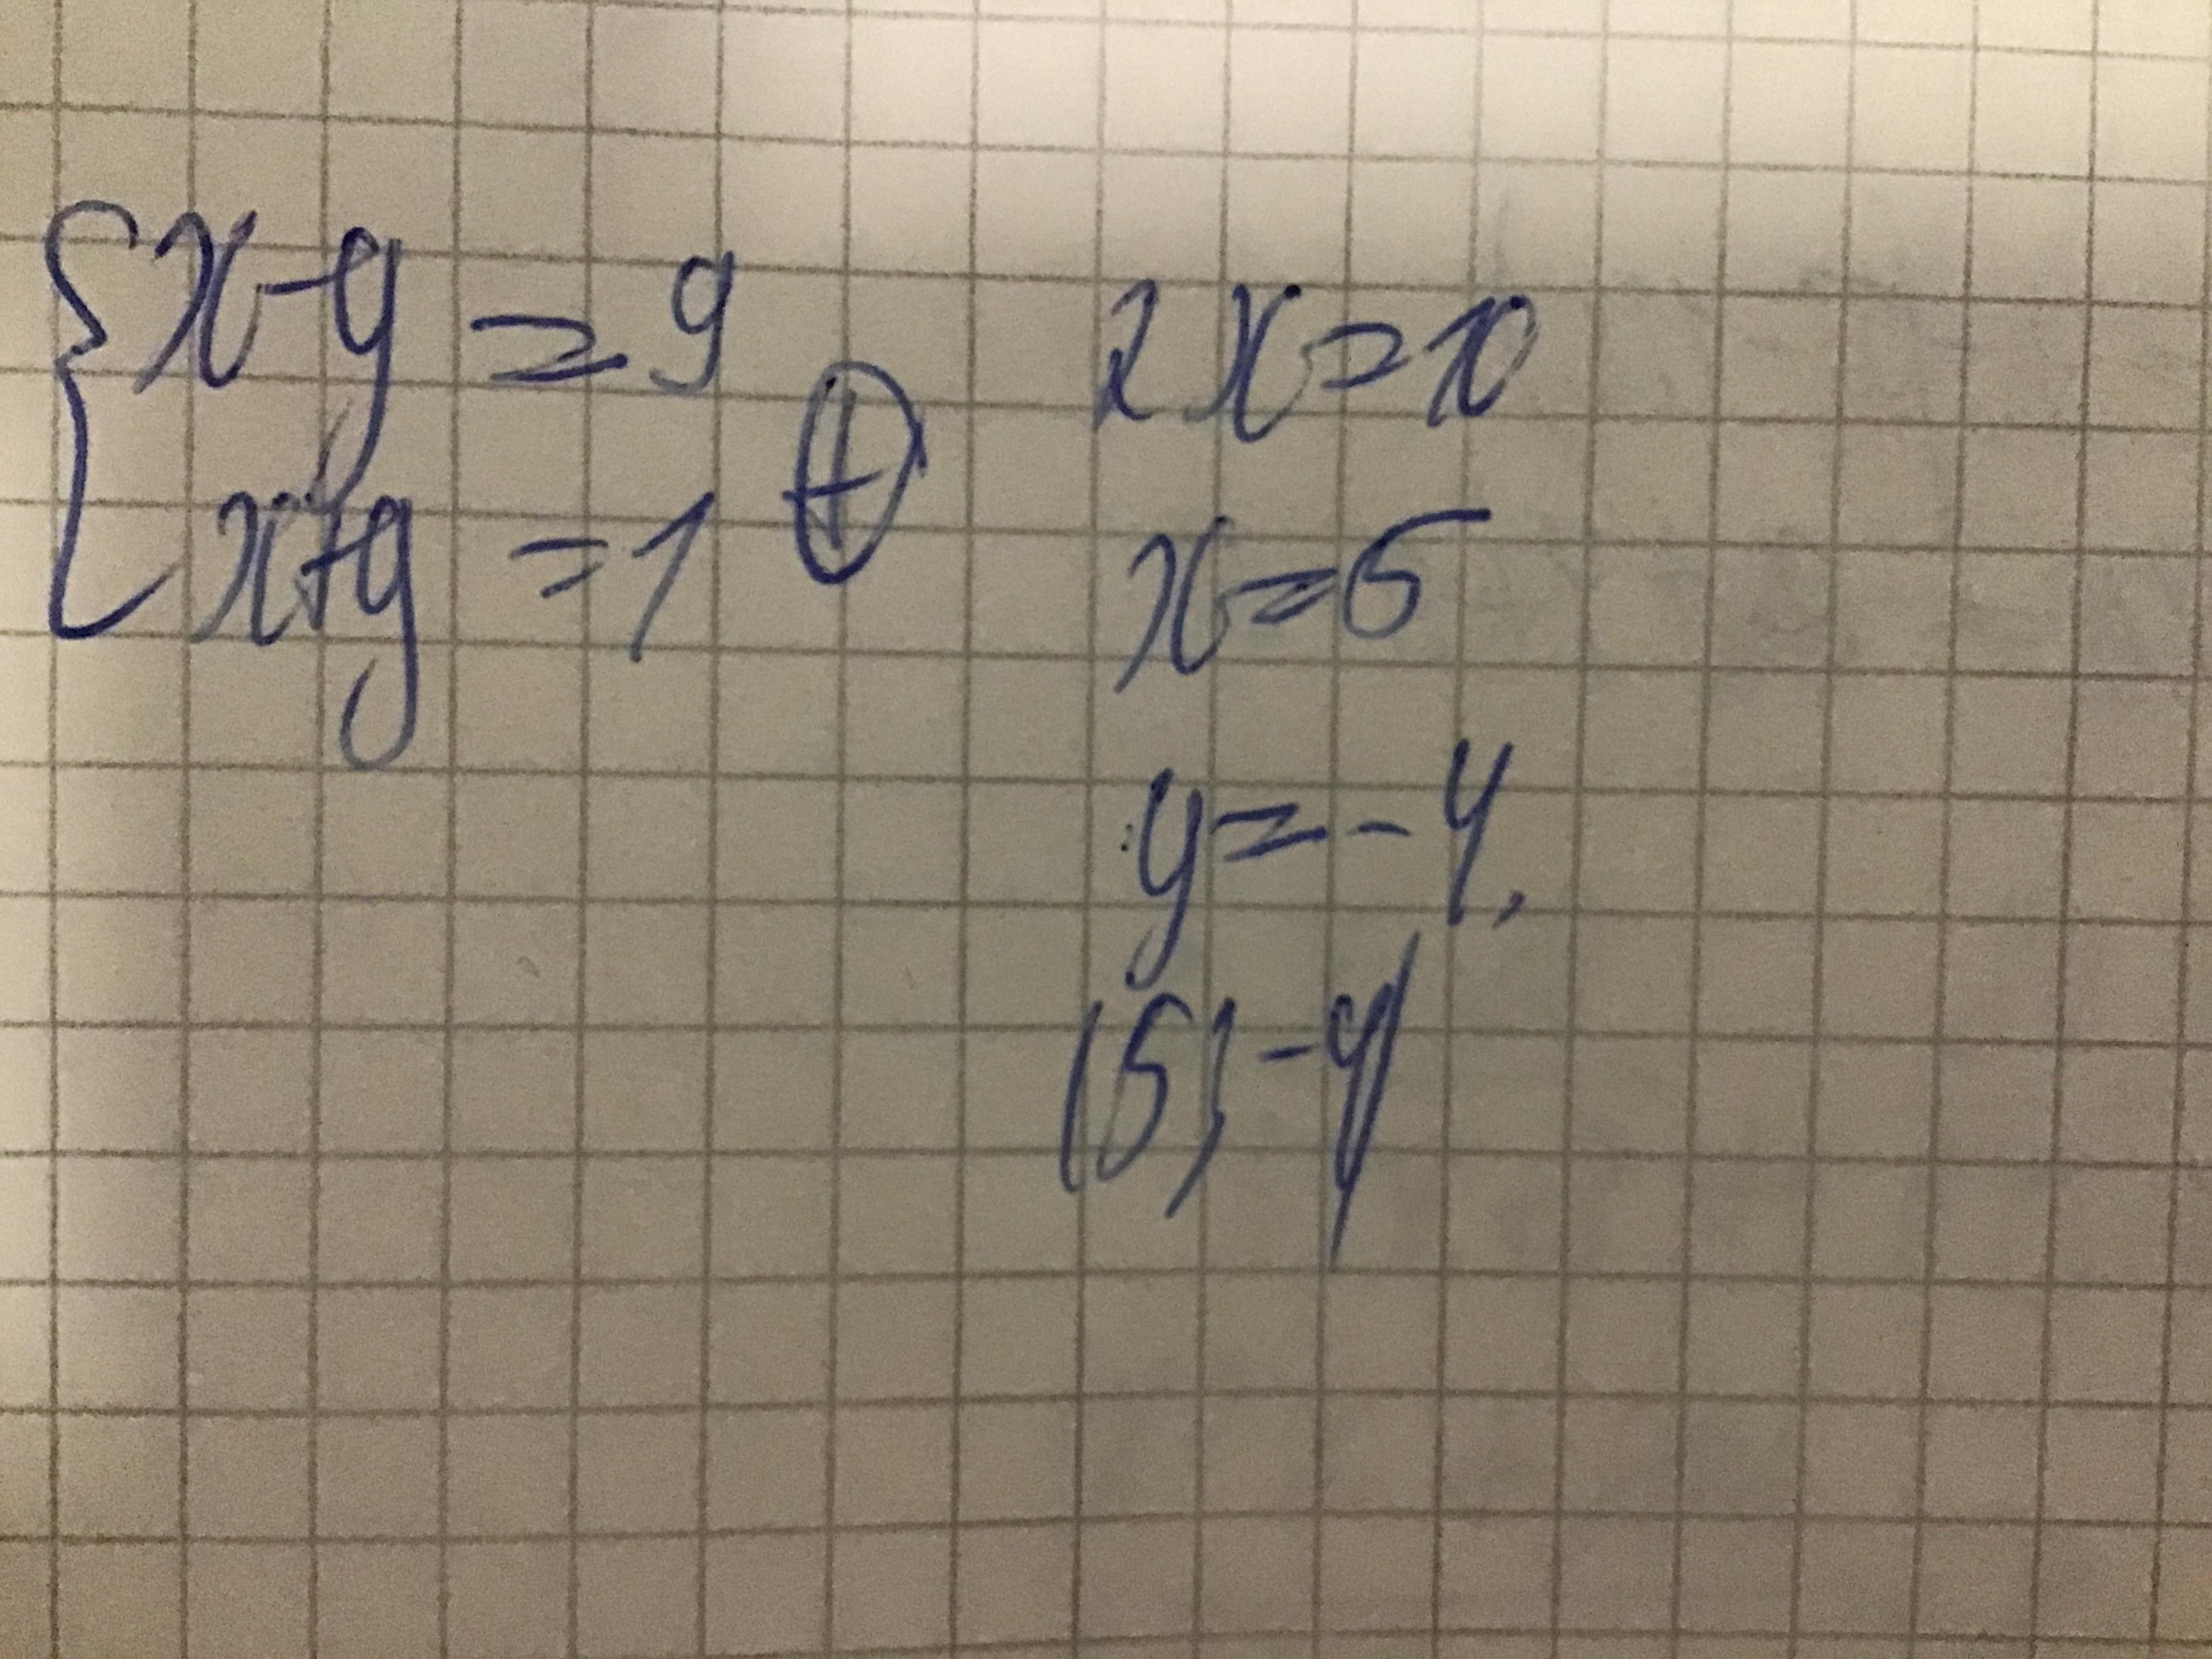 {x-y=9
x+y=1 ⊕
2x=10
x=5
y=-4.
(5;-4)